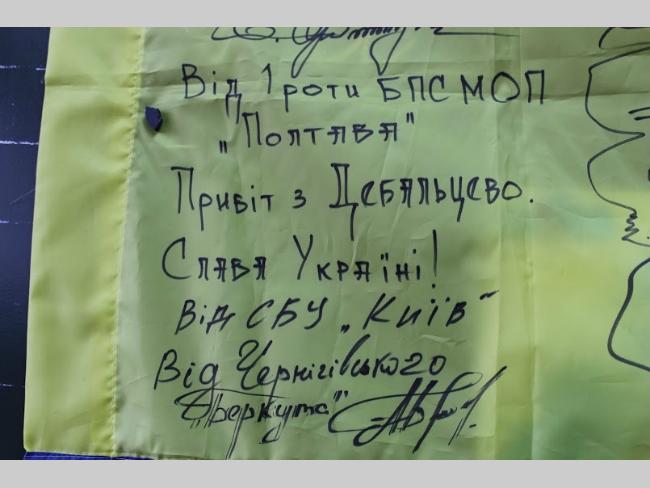 Від 1 роти БПСМОП
„Полтава"
Привіт з Дебальцево.
Слава Україні!
Від СБУ „Київ"
Від Чернігівського
"Беркута"